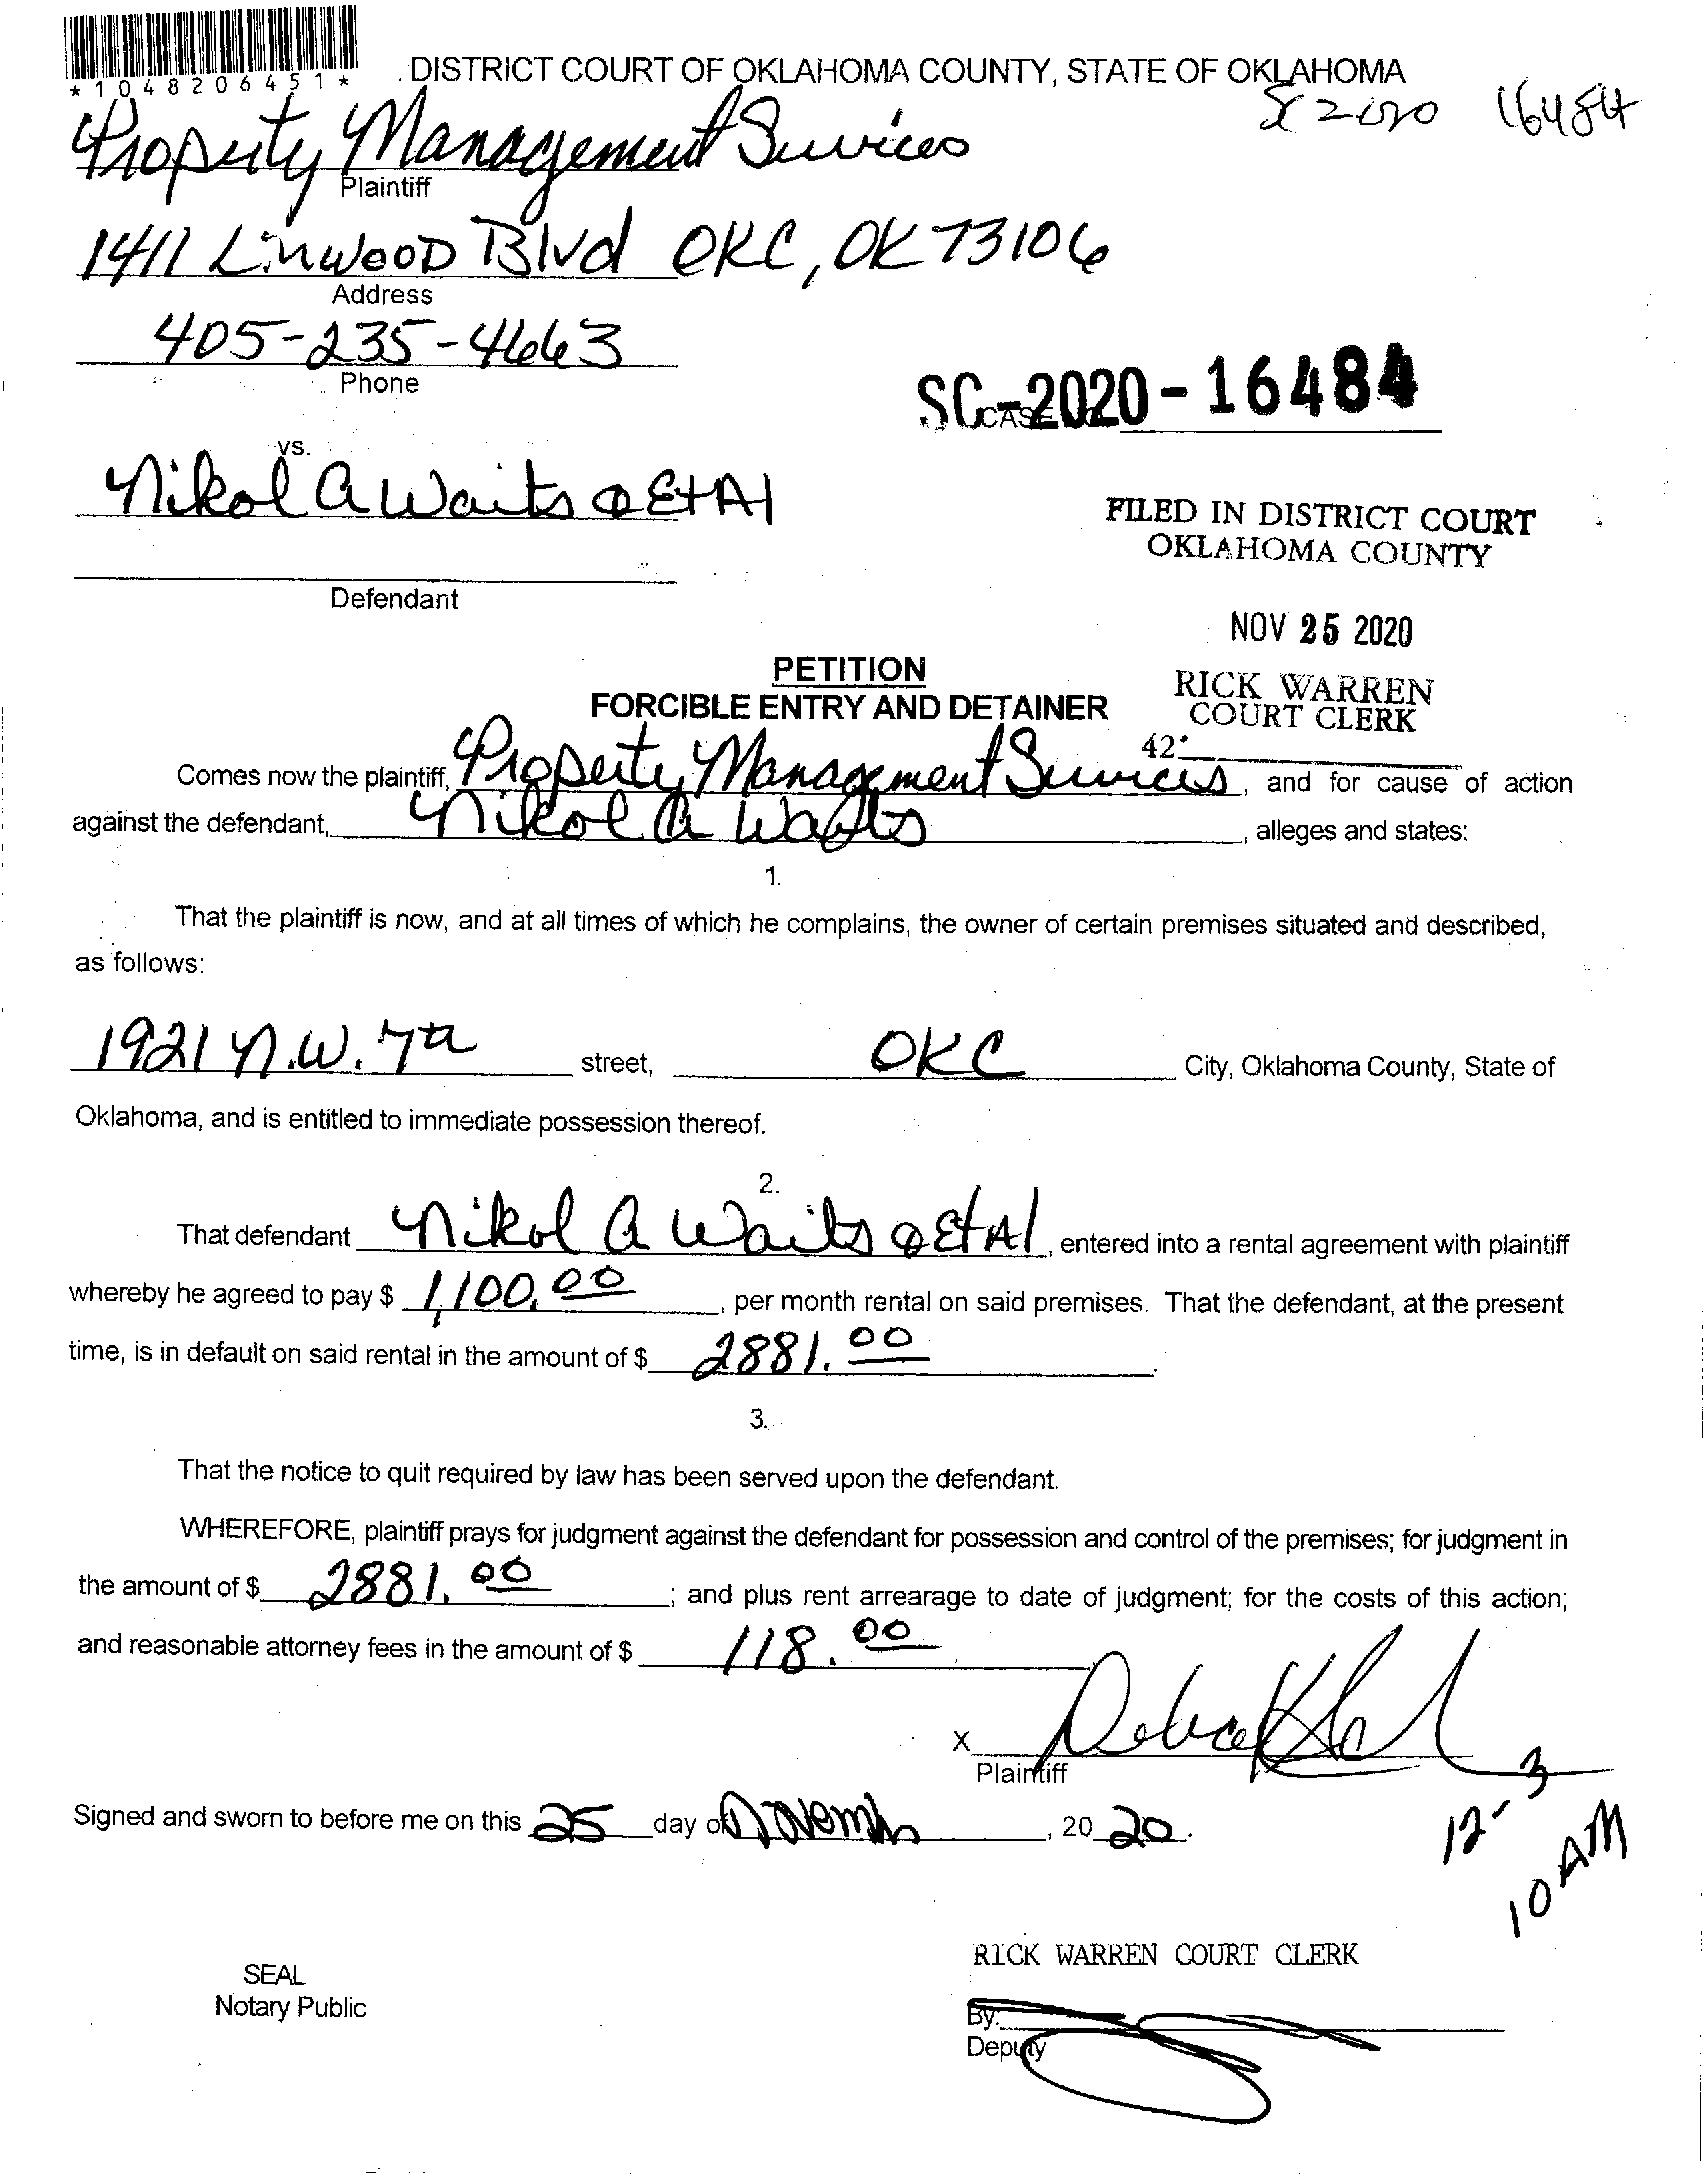 *1048206451*
DISTRICT COURT OF OKLAHOMA COUNTY, STATE OF OKLAHOMA
SC 2020 16484
Property Management Services
Plaintiff
1411 Linwood Blvd OKC, OK 73106
Address
405-235-4663
Phone
SC-2020-16484
CASE
vs.
Nikol A Waits & Et Al
FILED IN DISTRICT COURT
OKLAHOMA COUNTY
Defendant
NOV 25 2020
PETITION
RICK WARREN
FORCIBLE ENTRY AND DETAINER
COURT CLERK
42
Comes now the plaintiff, Property Management Services, and for cause of action
against the defendant, Nikol A Waits, alleges and states:
1.
That the plaintiff is now, and at all times of which he complains, the owner of certain premises situated and described,
as follows:
1921 N.W. 7th street, OKC City, Oklahoma County, State of
Oklahoma, and is entitled to immediate possession thereof.
2.
That defendant Nikol A Waits & Et Al, entered into a rental agreement with plaintiff
whereby he agreed to pay $ 1,100.00, per month rental on said premises. That the defendant, at the present
time, is in default on said rental in the amount of $ 2881.00.
3.
That the notice to quit required by law has been served upon the defendant.
WHEREFORE, plaintiff prays for judgment against the defendant for possession and control of the premises; for judgment in
the amount of $ 2881.00; and plus rent arrearage to date of judgment; for the costs of this action;
and reasonable attorney fees in the amount of $ 118.00
X
Plaintiff
Signed and sworn to before me on this 25 day of Novemb, 20 20.
12-3
10 AM
RICK WARREN COURT CLERK
SEAL
Notary Public
By:
Deputy